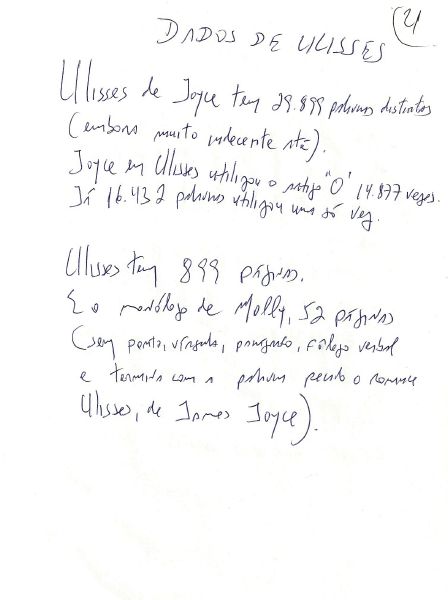 4
DADOS DE ULISSES
Ulisses de Joyce tem 29.899 palavras distintas
(embora muito indecente até).
Joyce em Ulisses utilizou o artigo "O" 14.877 vezes.
Já 16.432 palavras utilizou uma só vez.
Ulisses tem 899 páginas.
E o monólogo de Molly, 52 páginas
(sem ponto, vírgula, parágrafo, fôlego verbal
e termina com a palavra o romance
Ulisses, de James Joyce).